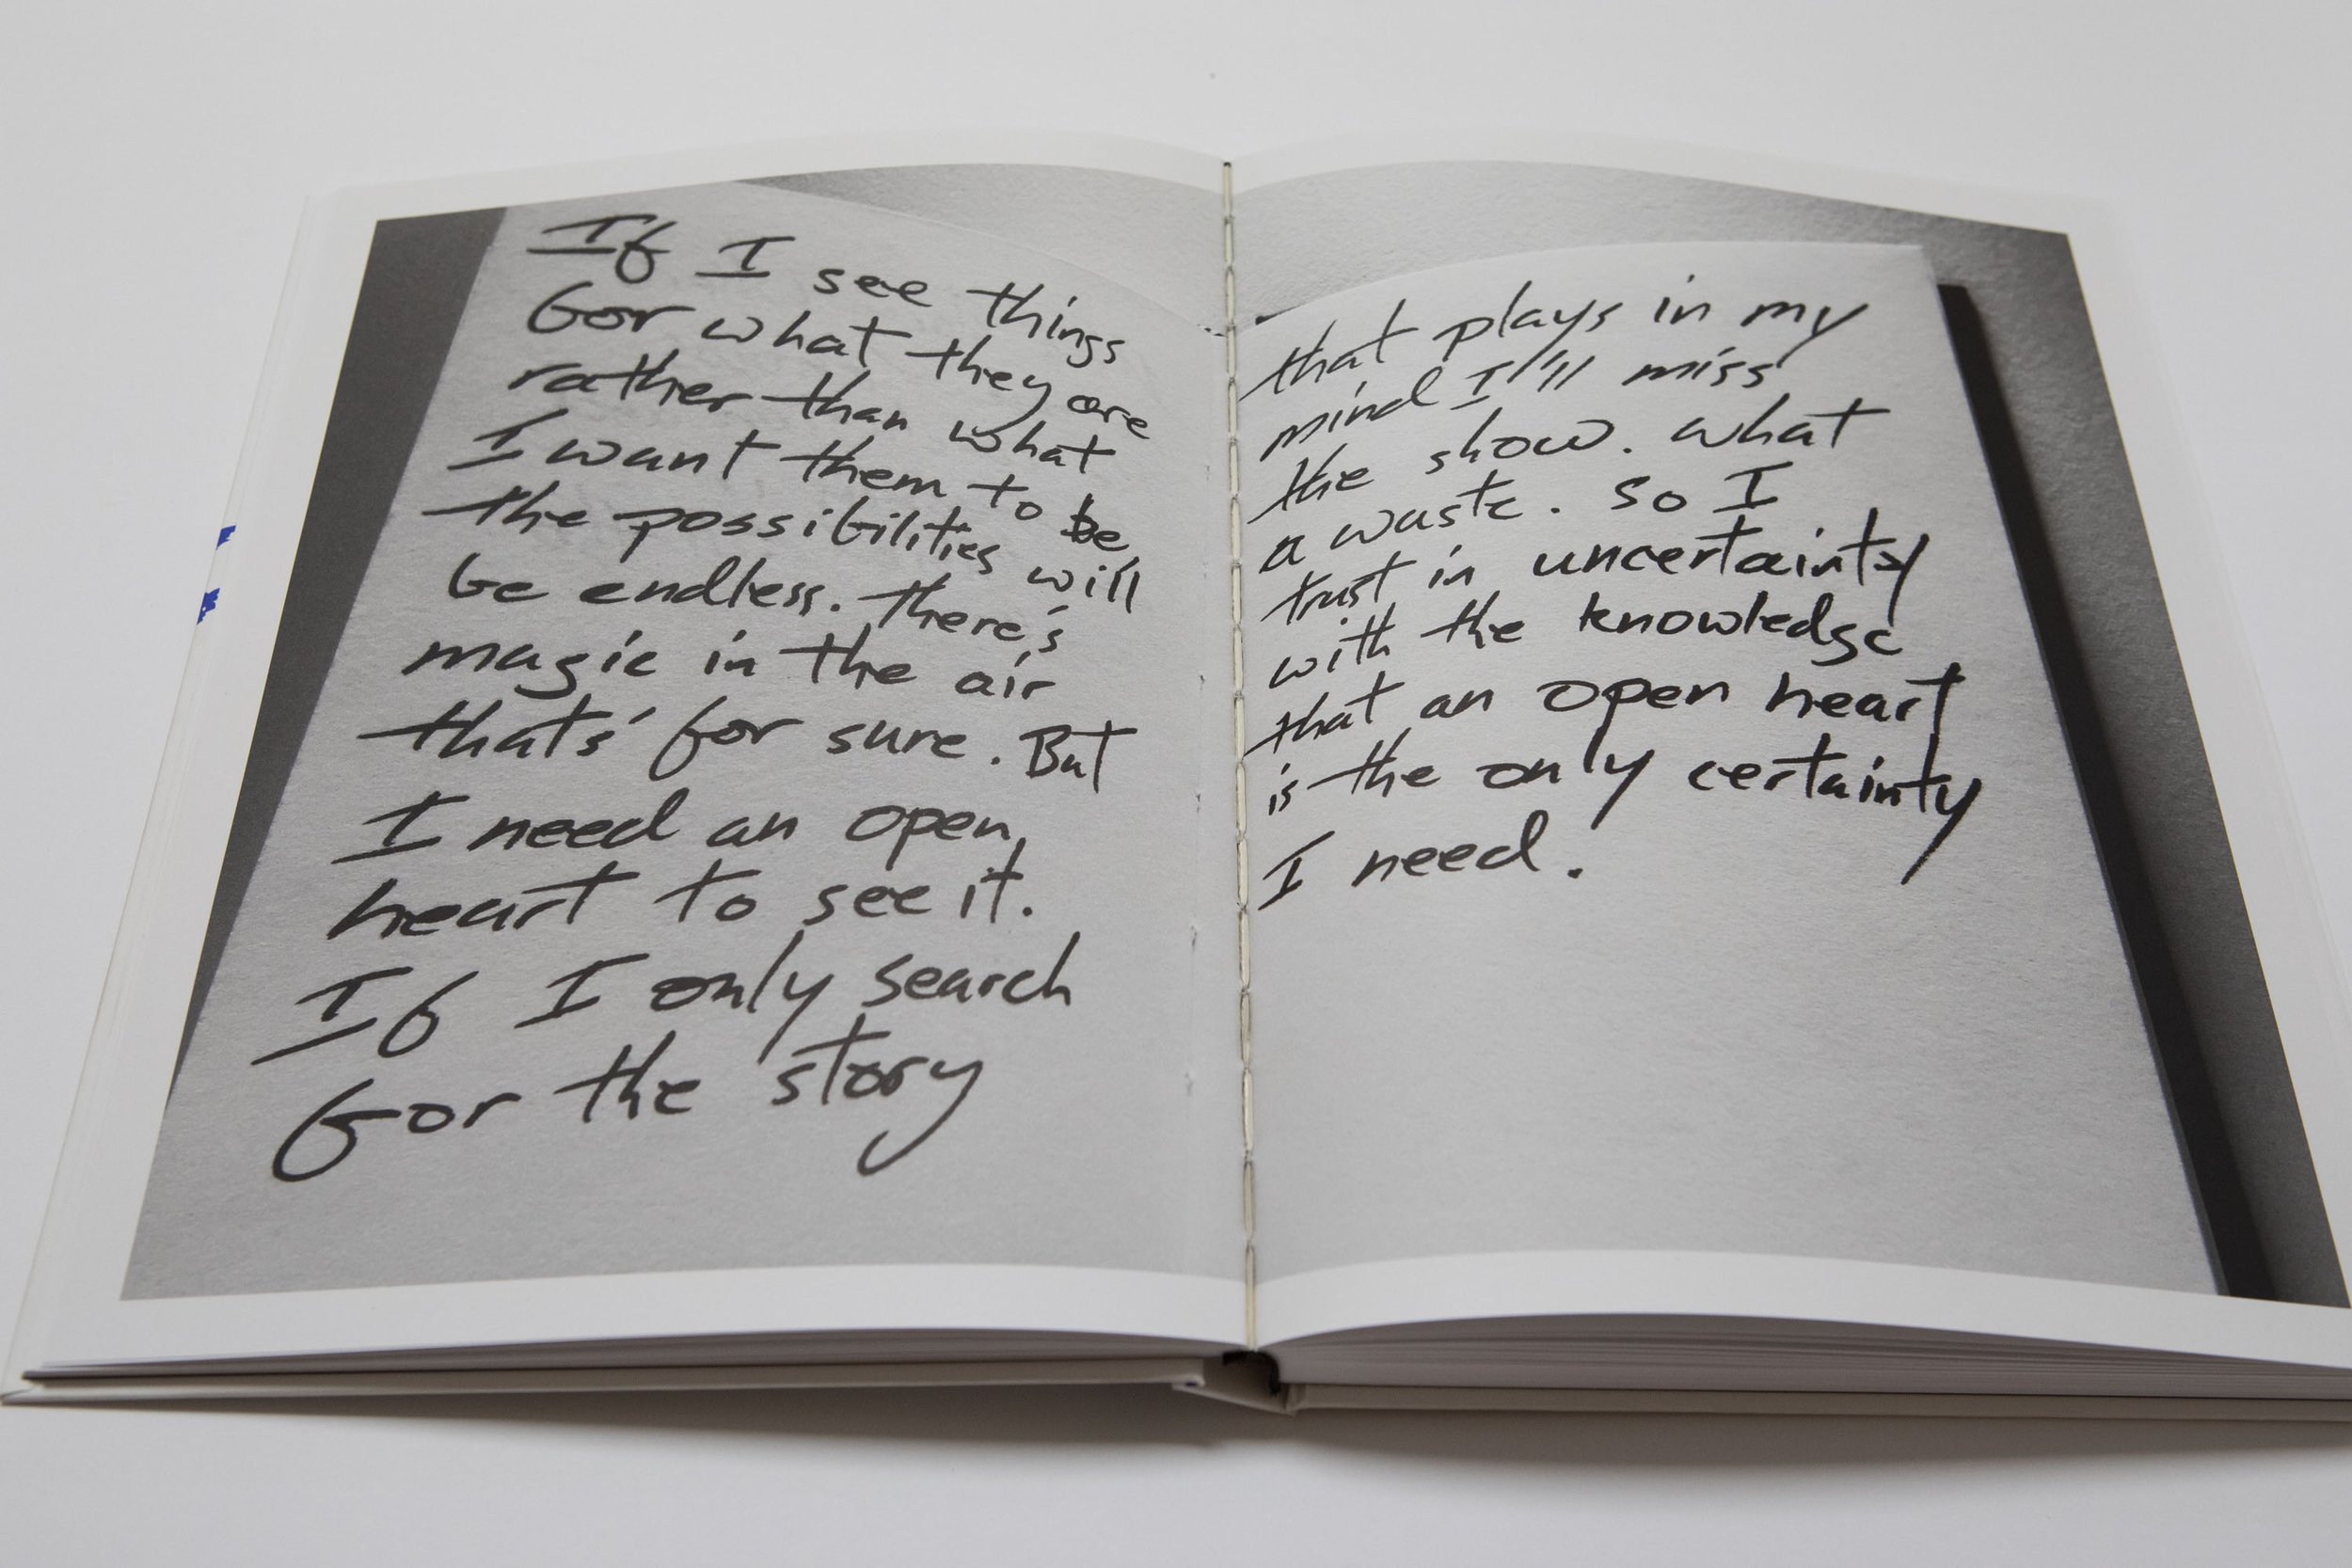 If I see things
for what they are
rather than what
I want them to be
the possibilities will
be endless. There's
magic in the air
that's for sure. But
I need an open
heart to see it.
If I only search
for the story
that plays in my
mind I'll miss
the show. What
a waste. So I
trust in uncertainty
with the knowledge
that an open heart
is the only certainty
I need.